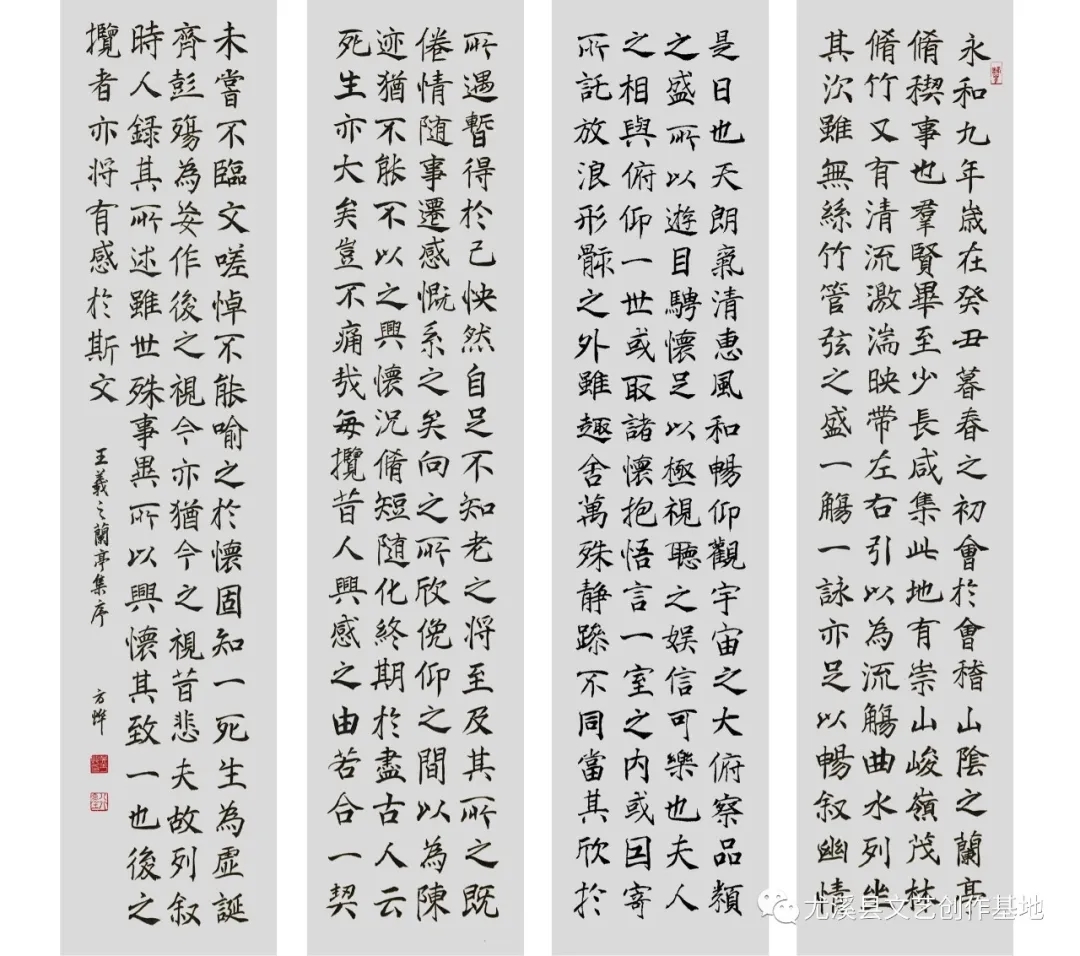 永和九年歲在癸丑暮春之初會於會稽山陰之蘭亭
脩稧事也羣賢畢至少長咸集此地有崇山峻嶺茂林
脩竹又有清流激湍映帶左右引以為流觴曲水列坐
其次雖無絲竹管弦之盛一觴一詠亦足以暢叙幽情
是日也天朗氣清惠風和暢仰觀宇宙之大俯察品類
之盛所以遊目騁懷足以極視聽之娱信可樂也夫人
之相與俯仰一世或取諸懷抱悟言一室之内或因寄
所託放浪形骸之外雖趣舍萬殊静躁不同當其欣於
所遇暫得於己怏然自足不知老之将至及其所之既
倦情随事遷感慨系之矣向之所欣俛仰之間以為陳
迹猶不能不以之興懷況脩短随化終期於盡古人云
死生亦大矣豈不痛哉每攬昔人興感之由若合一契
未嘗不臨文嗟悼不能喻之於懷固知一死生為虛誕
齊彭殤為妄作後之視今亦猶今之視昔悲夫故列叙
時人録其所述雖世殊事異所以興懷其致一也後之
攬者亦将有感於斯文
王羲之蘭亭集序
方
尤溪县文艺创作基地